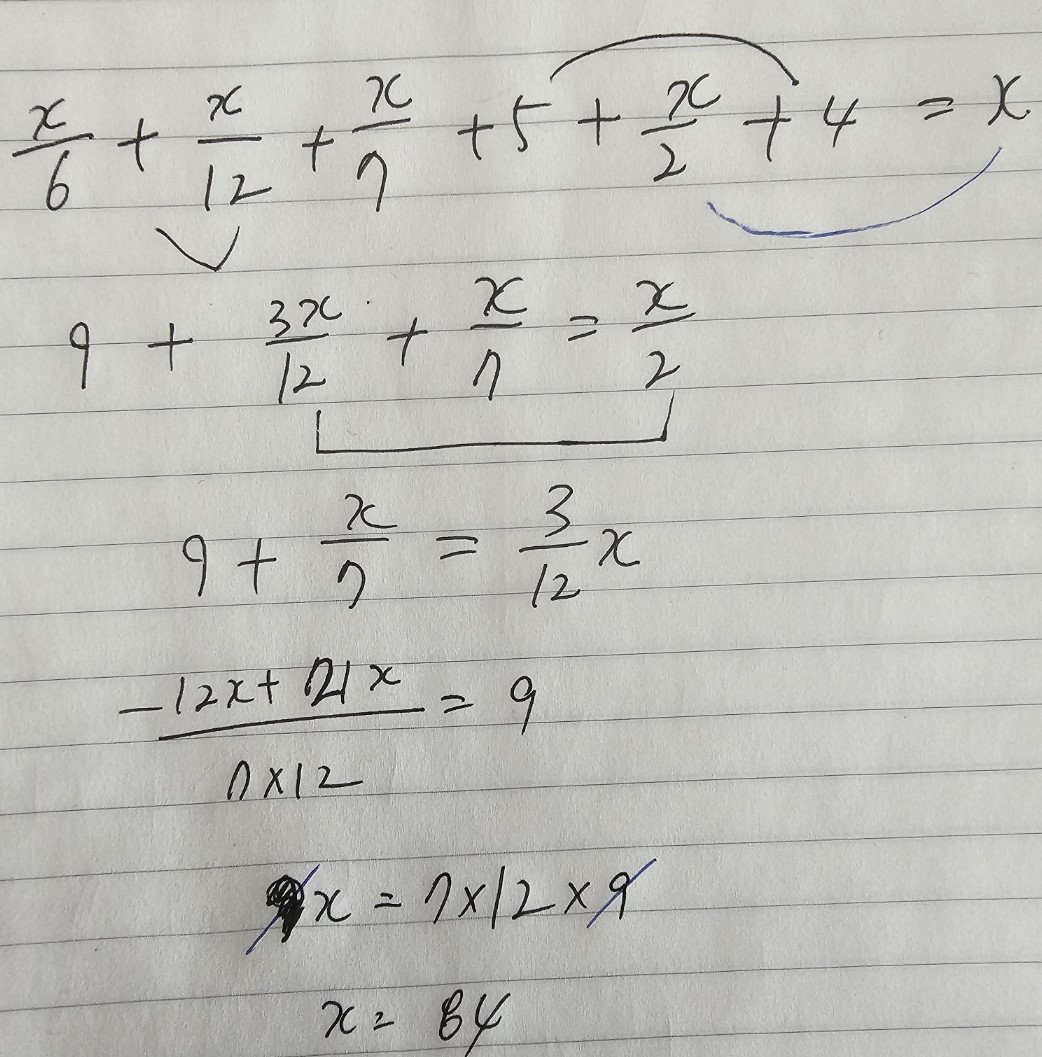 x/6 + x/12 + x/7 + 5 + x/2 + 4 = x
9 + 3x/12 + x/7 = x/2
9 + x/7 = 3/12 x
(-12x + 21x)/(7×12) = 9
9x = 7×12×9
x = 84